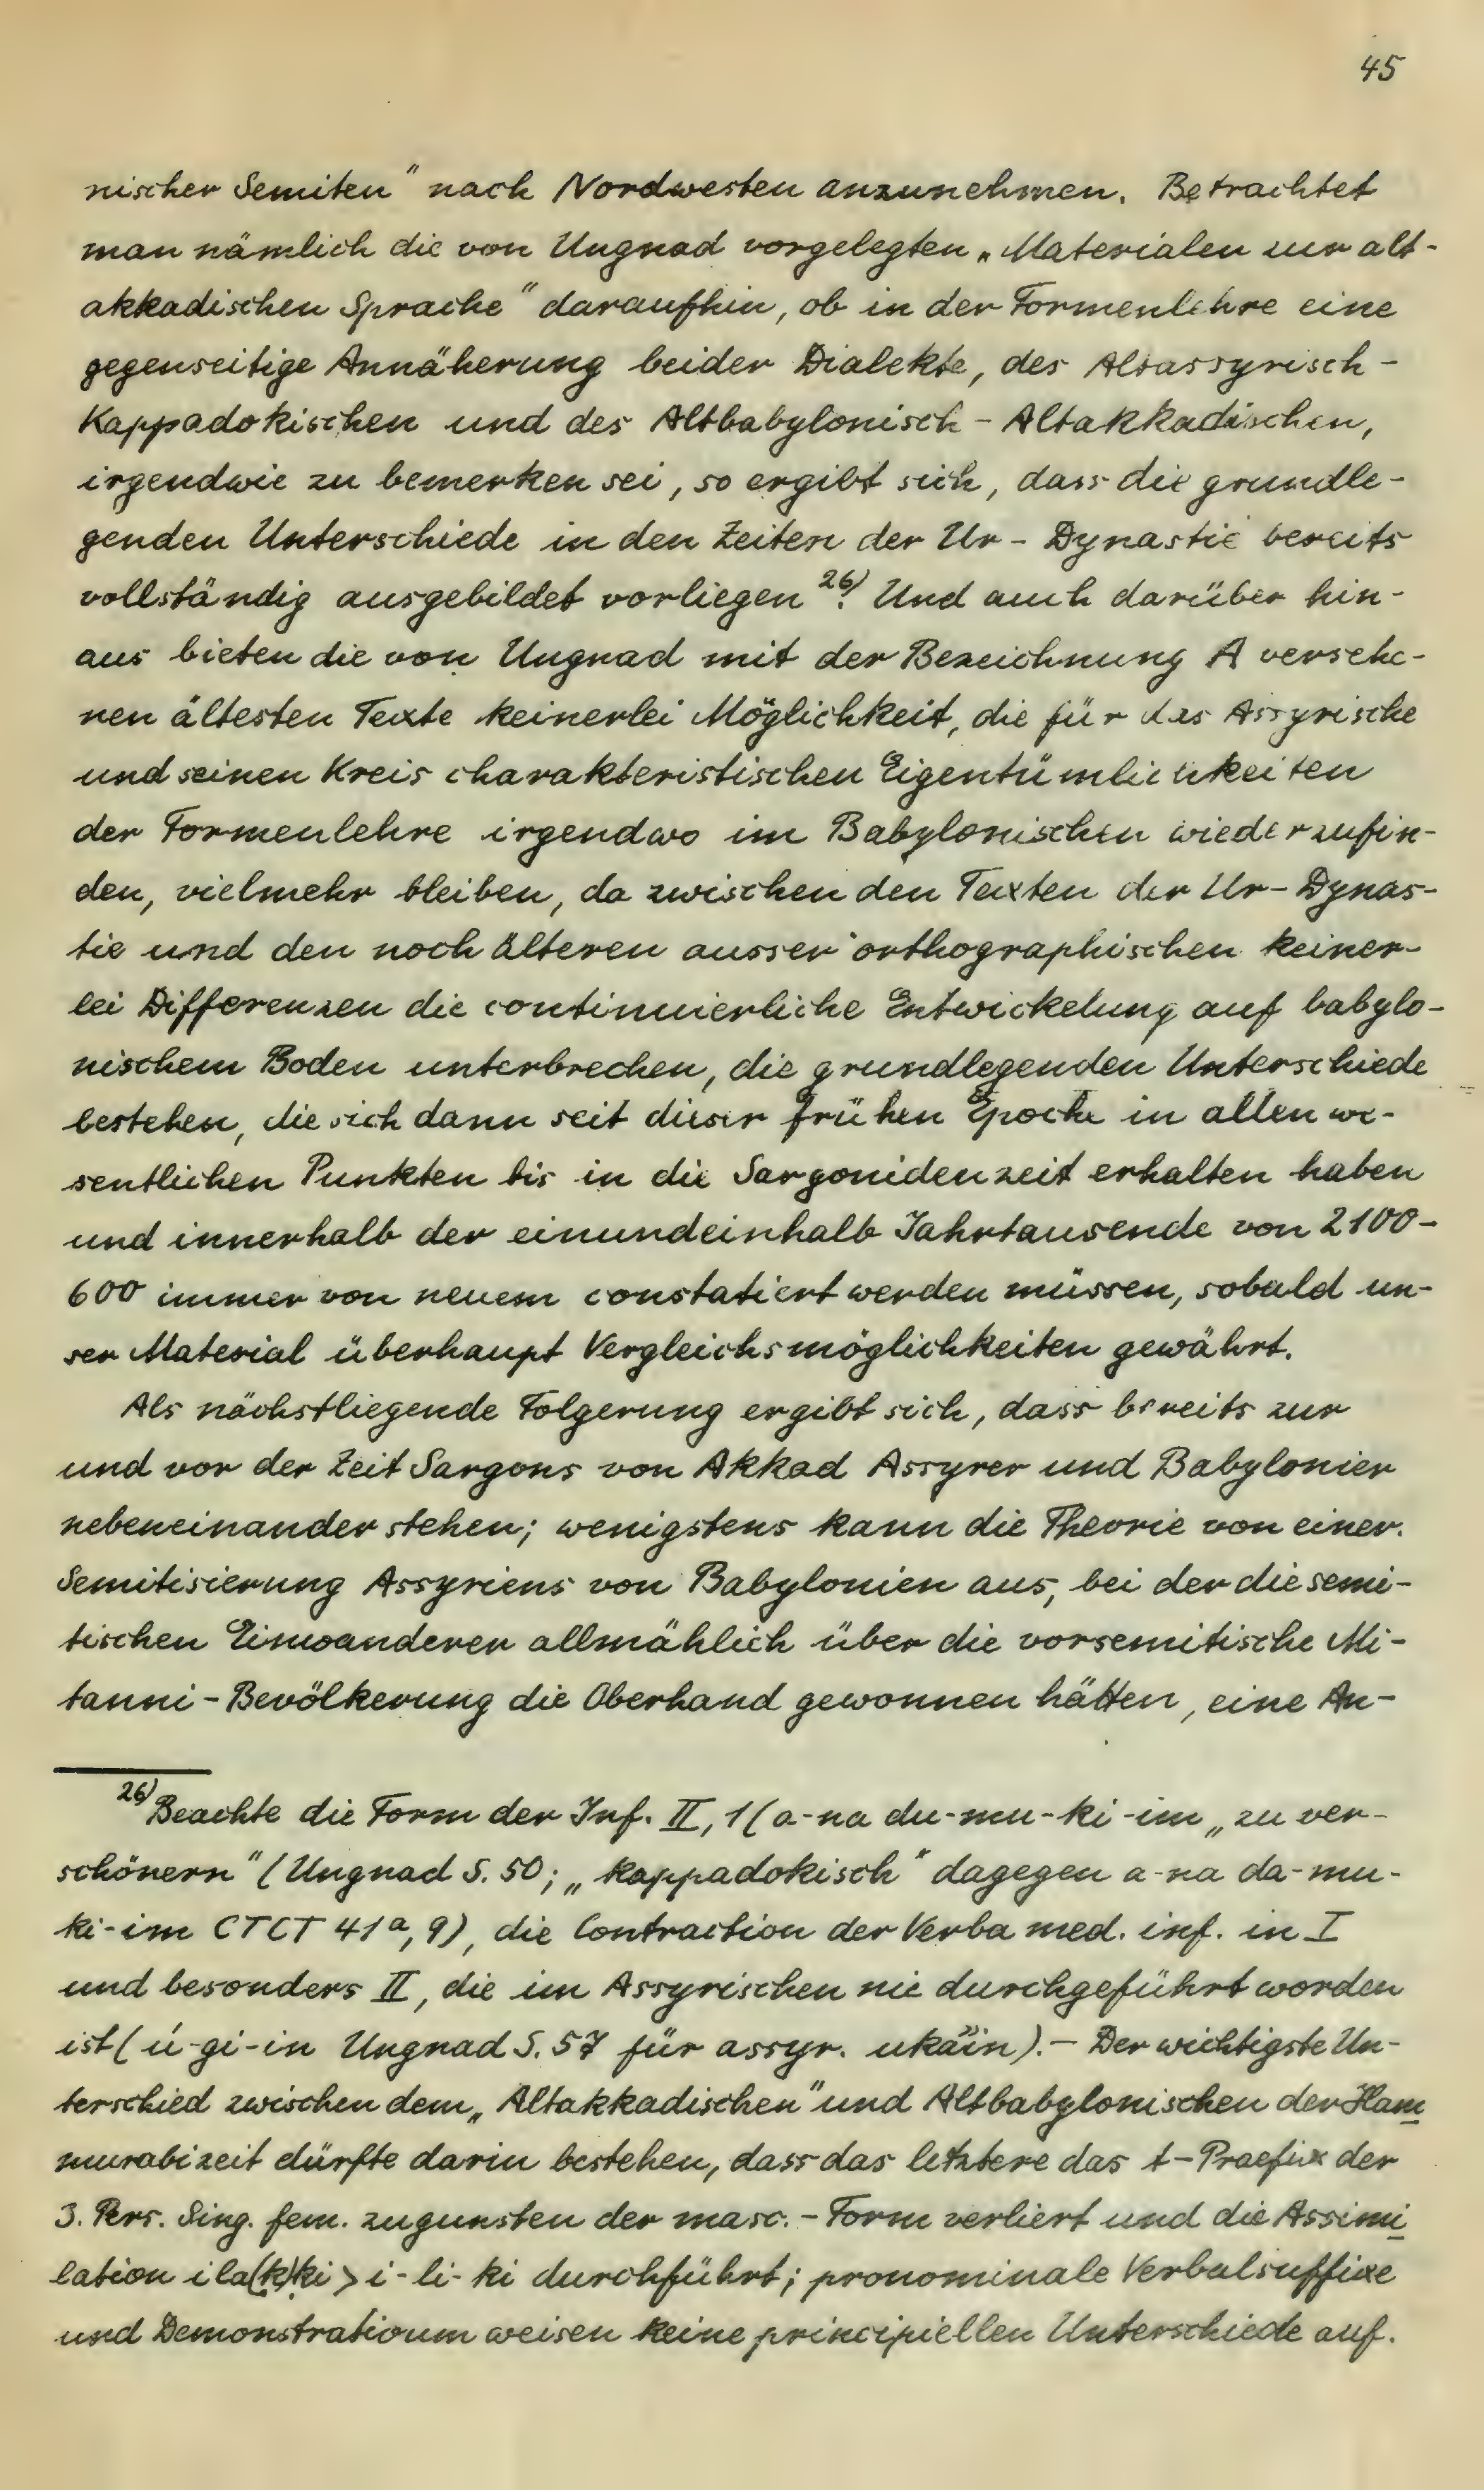 45
nischer Semiten" nach Nordwesten anzunehmen. Betrachtet
man nämlich die von Ungnad vorgelegten „Materialen zur alt-
akkadischen Sprache" daraufhin, ob in der Formenlehre eine
gegenseitige Annäherung beider Dialekte, des Altassyrisch-
Kappadokischen und des Altbabylonisch-Altakkadischen,
irgendwie zu bemerken sei, so ergibt sich, dass die grundle-
genden Unterschiede in den Zeiten der Ur-Dynastie bereits
vollständig ausgebildet vorliegen 26). Und auch darüber hin-
aus bieten die von Ungnad mit der Bezeichnung A versehe-
nen ältesten Texte keinerlei Möglichkeit, die für das Assyrische
und seinen Kreis charakteristischen Eigentümlichkeiten
der Formenlehre irgendwo im Babylonischen wiederzufin-
den, vielmehr bleiben, da zwischen den Texten der Ur-Dynas-
tie und den noch älteren ausser orthographischen keiner-
lei Differenzen die continuierliche Entwickelung auf babylo-
nischem Boden unterbrechen, die grundlegenden Unterschiede
bestehen, die sich dann seit dieser frühen Epoche in allen we-
sentlichen Punkten bis in die Sargonidenzeit erhalten haben
und innerhalb der einundeinhalb Jahrtausende von 2100-
600 immer von neuem constatiert werden müssen, sobald un-
ser Material überhaupt Vergleichsmöglichkeiten gewährt.
Als nächstliegende Folgerung ergibt sich, dass bereits zur
und vor der Zeit Sargons von Akkad Assyrer und Babylonier
nebeneinander stehen; wenigstens kann die Theorie von einer
Semitisierung Assyriens von Babylonien aus, bei der die semi-
tischen Einwanderer allmählich über die vorsemitische Mi-
tanni-Bevölkerung die Oberhand gewonnen hätten, eine An-
26) Beachte die Form der Inf. II, 1 (a-na du-mu-ki-im „zu ver-
schönern" (Ungnad S. 50; „kappadokisch" dagegen a-na da-mu-
ki-im CTCT 41a, 9), die Contraction der Verba med. inf. in I
und besonders II, die im Assyrischen nie durchgeführt worden
ist (ú-gi-in Ungnad S. 57 für assyr. ukaʾʾin).- Der wichtigste Un-
terschied zwischen dem „Altakkadischen" und Altbabylonischen der Ham
murabizeit dürfte darin bestehen, dass das letztere das t-Praefix der
3. Pers. Sing. fem. zugunsten der masc.-Form verliert und die Assimi
lation ila(k)ki > i-li-ki durchführt; pronominale Verbalsuffixe
und Demonstrativum weisen keine principiellen Unterschiede auf.